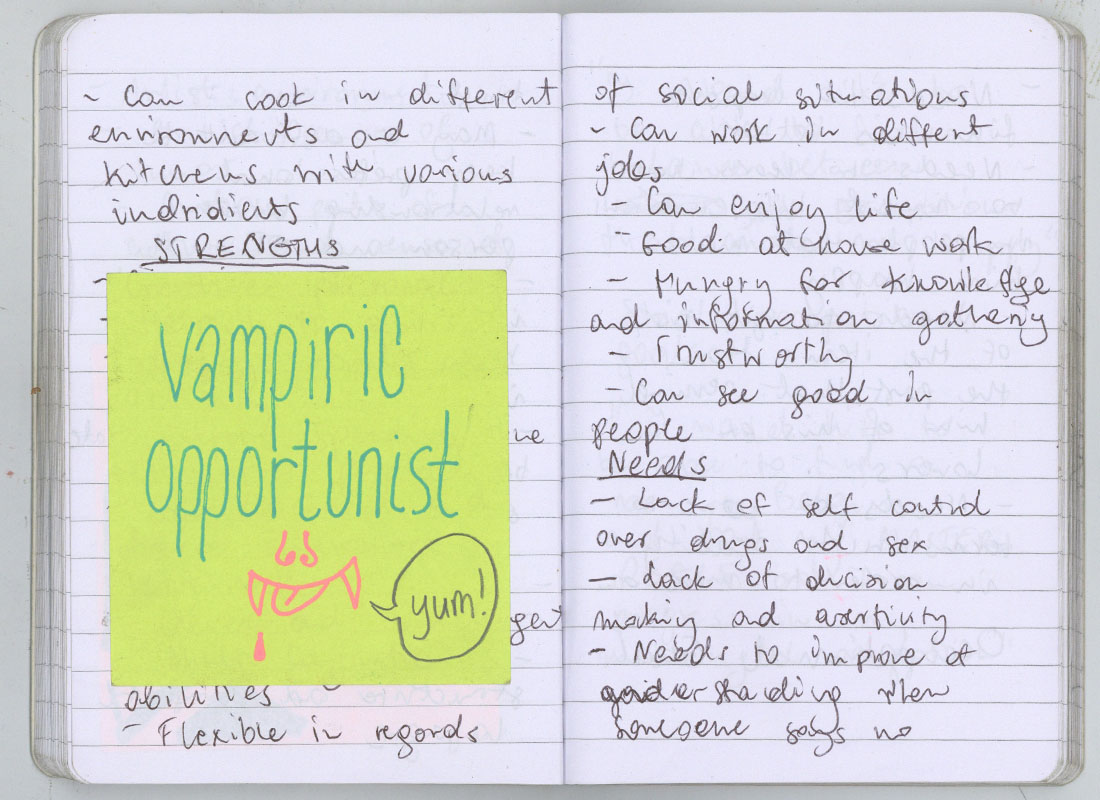 - Can cook in different
environments and
kitchens with various
indridients
STRENGTHS
-
-
vampiric
opportunist
yum!
ne
gent
abilities
- Flexible in regards
of social situations
- Can work in different
jobs
- Can enjoy life
- Good at house work
- Hungry for knowledge
and information gathering
- Trustworthy
- Can see good in
people
Needs
- Lack of self control
over drugs and sex
- Lack of decision
making and asertivity
- Needs to improve at
understanding when
someone says no